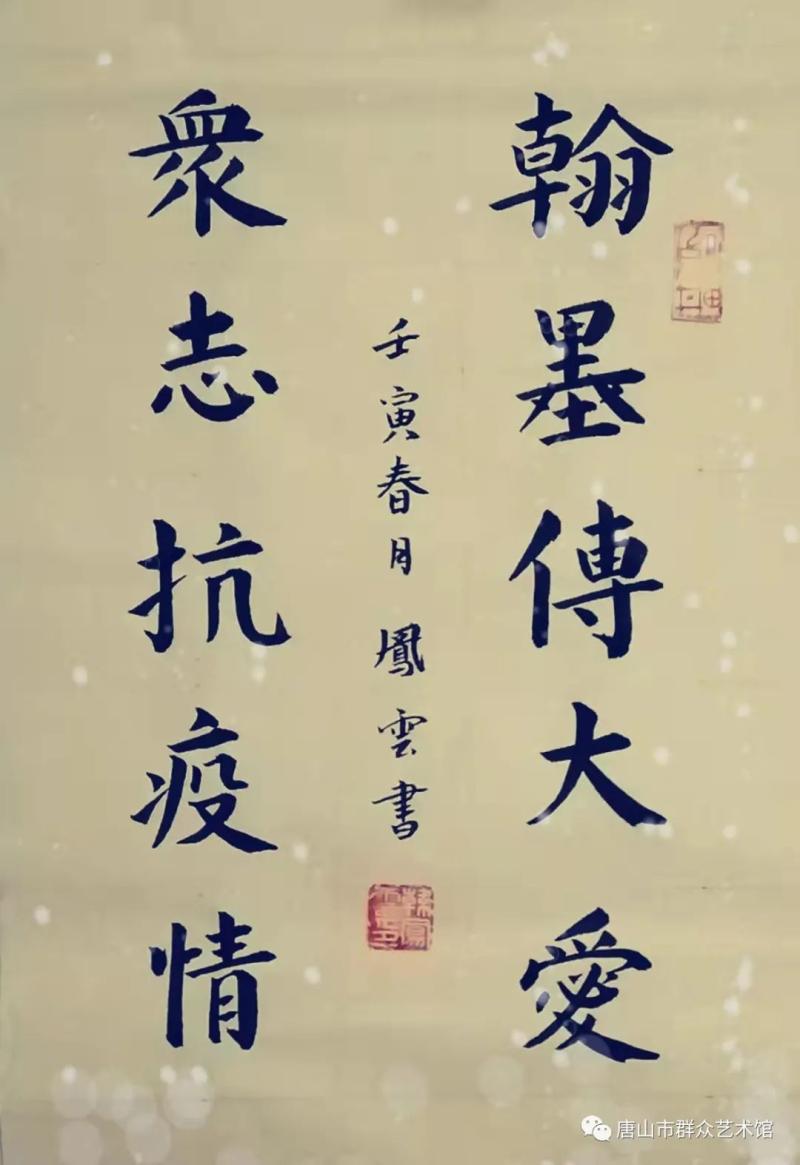 翰墨傳大愛
壬寅春月 鳳雲書
衆志抗疫情
唐山市群众艺术馆